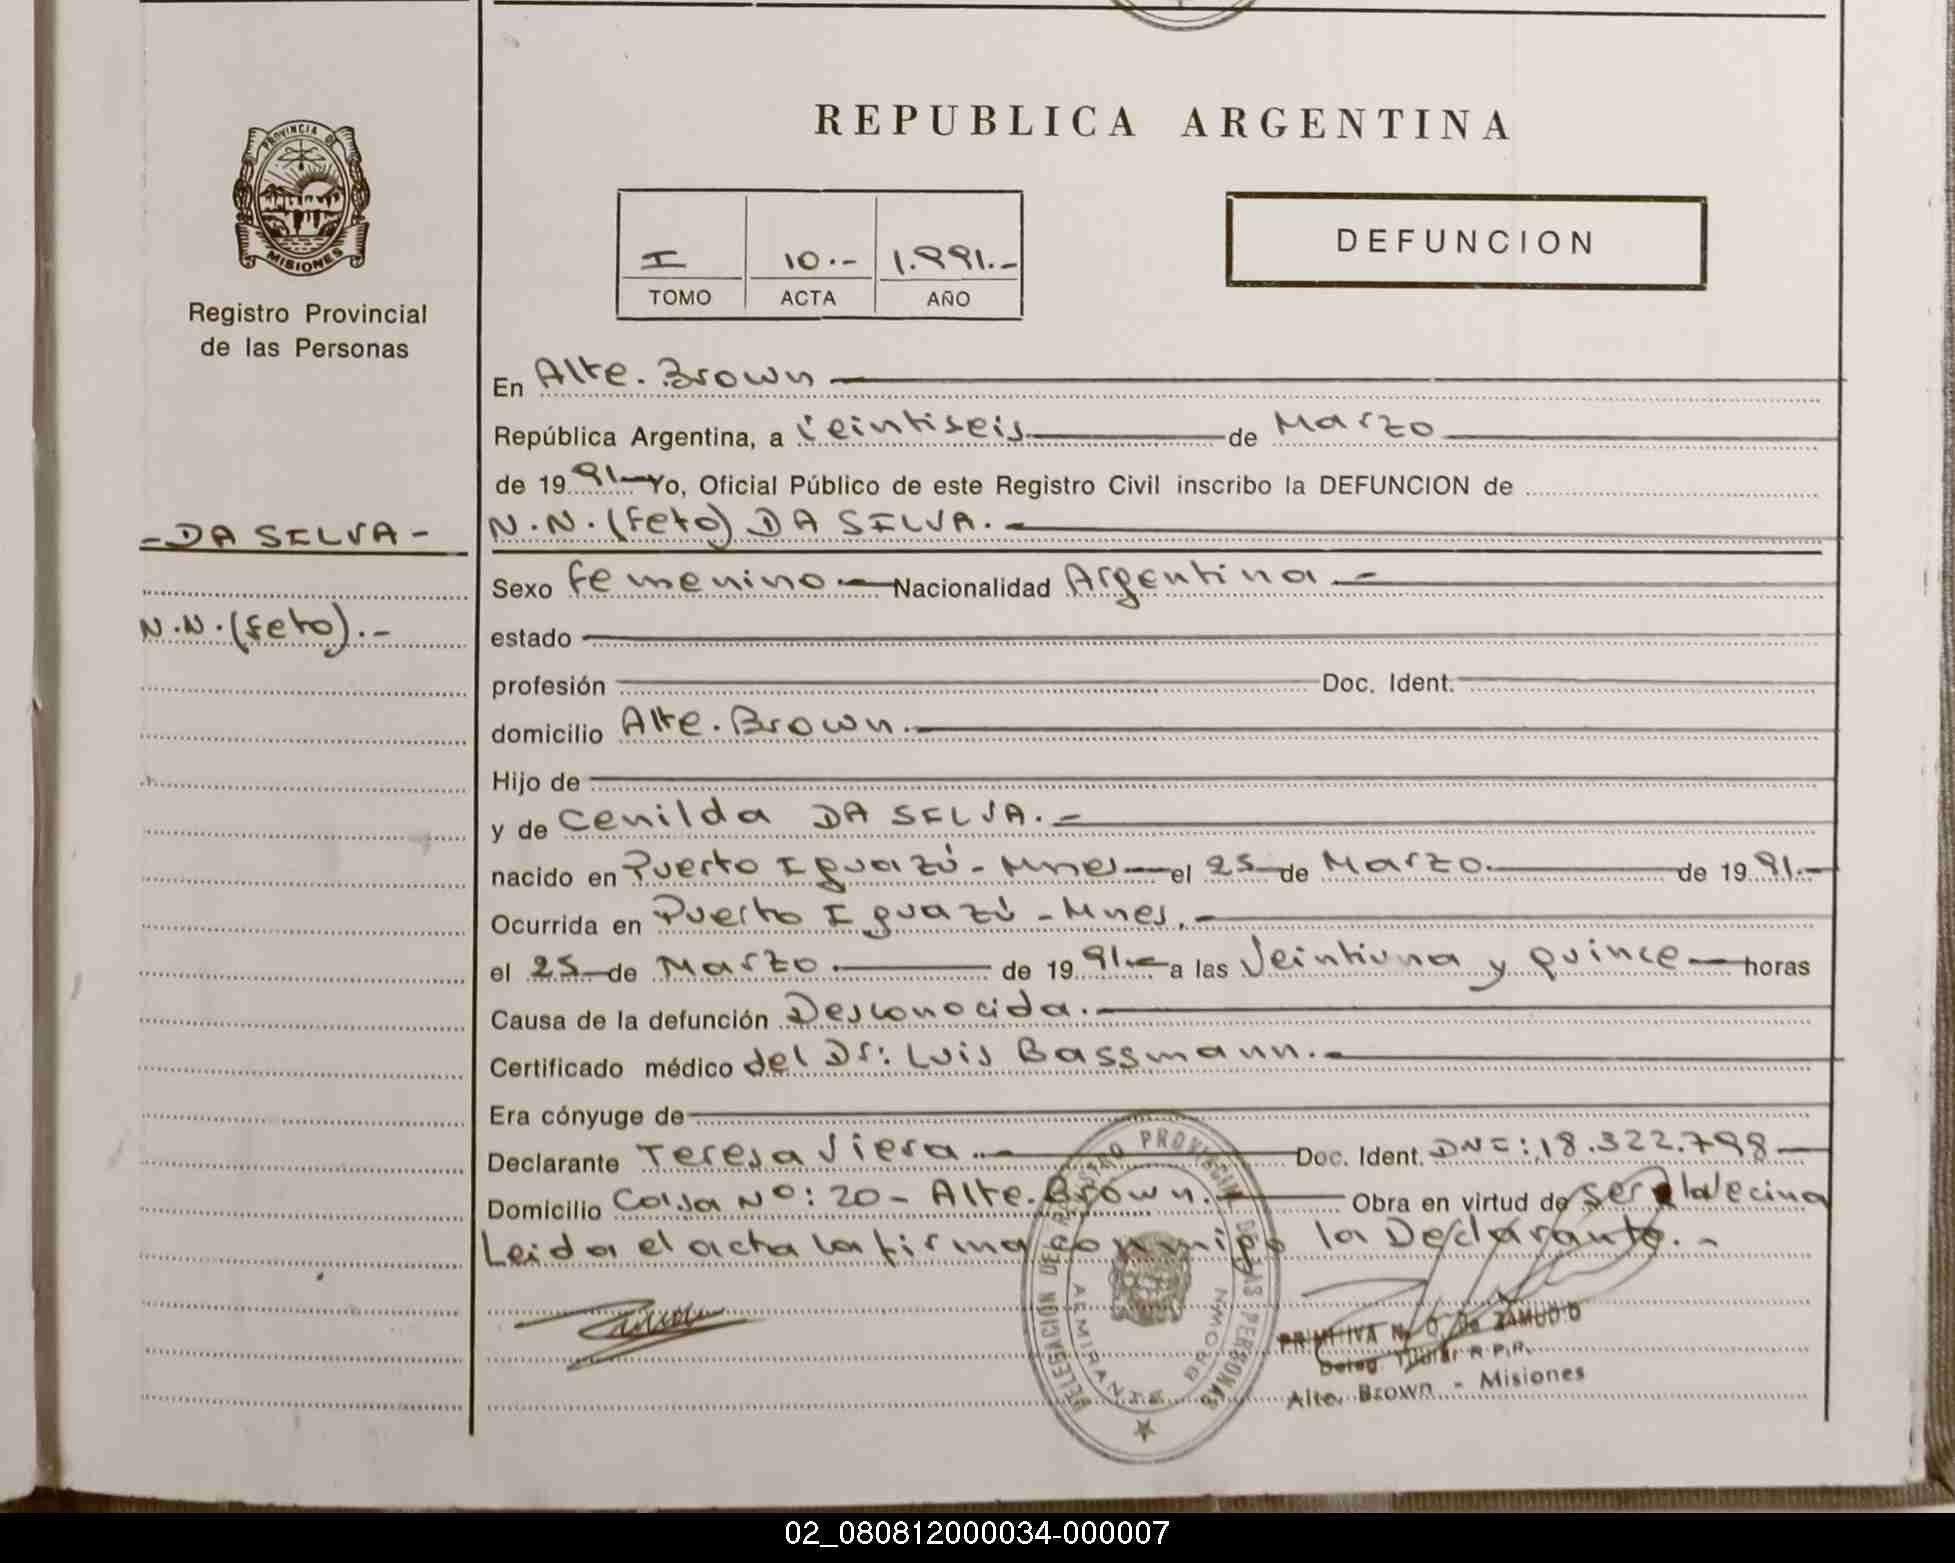 REPUBLICA ARGENTINA
PROVINCIA DE
MISIONES
Registro Provincial
de las Personas
I 10.- 1.991.-
TOMO ACTA AÑO
DEFUNCION
En Alte. Brown
República Argentina, a veintiseis de Marzo
de 1991 Yo, Oficial Público de este Registro Civil inscribo la DEFUNCION de
- DA SILVA -
N.N. (feto) DA SILVA.-
Sexo femenino.- Nacionalidad Argentina.-
N.N. (feto).-
estado
profesión Doc. Ident.
domicilio Alte. Brown.
Hijo de
y de Cenilda DA SILVA.-
nacido en Puerto Iguazú - Mnes el 25 de Marzo. de 1991.-
Ocurrida en Puerto Iguazú - Mnes.-
el 25 de Marzo. de 1991.- a las Veintiuna y quince horas
Causa de la defunción Desconocida.-
Certificado médico del Dr: Luis Bassmann.-
Era cónyuge de
Declarante Teresa Viera.- Doc. Ident. DNI: 18.322.798
Domicilio Casa Nº: 20 - Alte. Brown. Obra en virtud de ser la Vecina
Leida el acta la firma conmigo la Declarante.-
DELEGACIÓN DE REGISTRO PROVINCIAL DE LAS PERSONAS
ALMIRANTE BROWN
PRIMITIVA N. O. De ZAMUDIO
Deleg. Titular R.P.P.
Alte. Brown - Misiones
02_080812000034-000007